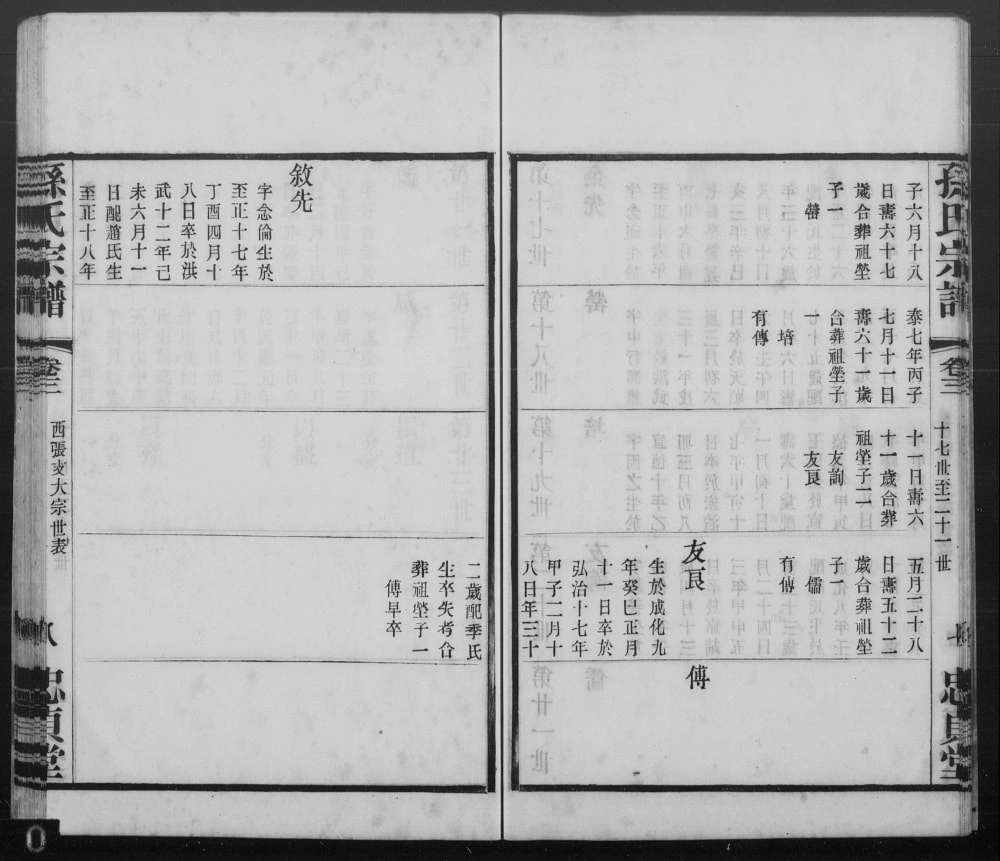 孫氏宗譜
卷三
十七世至二十一世
忠貞堂
子六月十八
日壽六十七
歲合葬祖塋
子一
罃
泰七年丙子
七月十一日
壽六十一歲
合葬祖塋子
一
培
有傳
十一日壽六
十一歲合葬
祖塋子二
友詢
友良
五月二十八
日壽五十二
歲合葬祖塋
子一
儒
有傳
友良
生於成化九
年癸巳正月
十一日卒於
弘治十七年
甲子二月十
八日年三十
傅
二歲配季氏
生卒失考合
葬祖塋子一
傅早卒
敘先
字念倫生於
至正十七年
丁酉四月十
八日卒於洪
武十二年己
未六月十一
日配趙氏生
至正十八年
孫氏宗譜
卷三
西張支大宗世表
八
忠貞堂